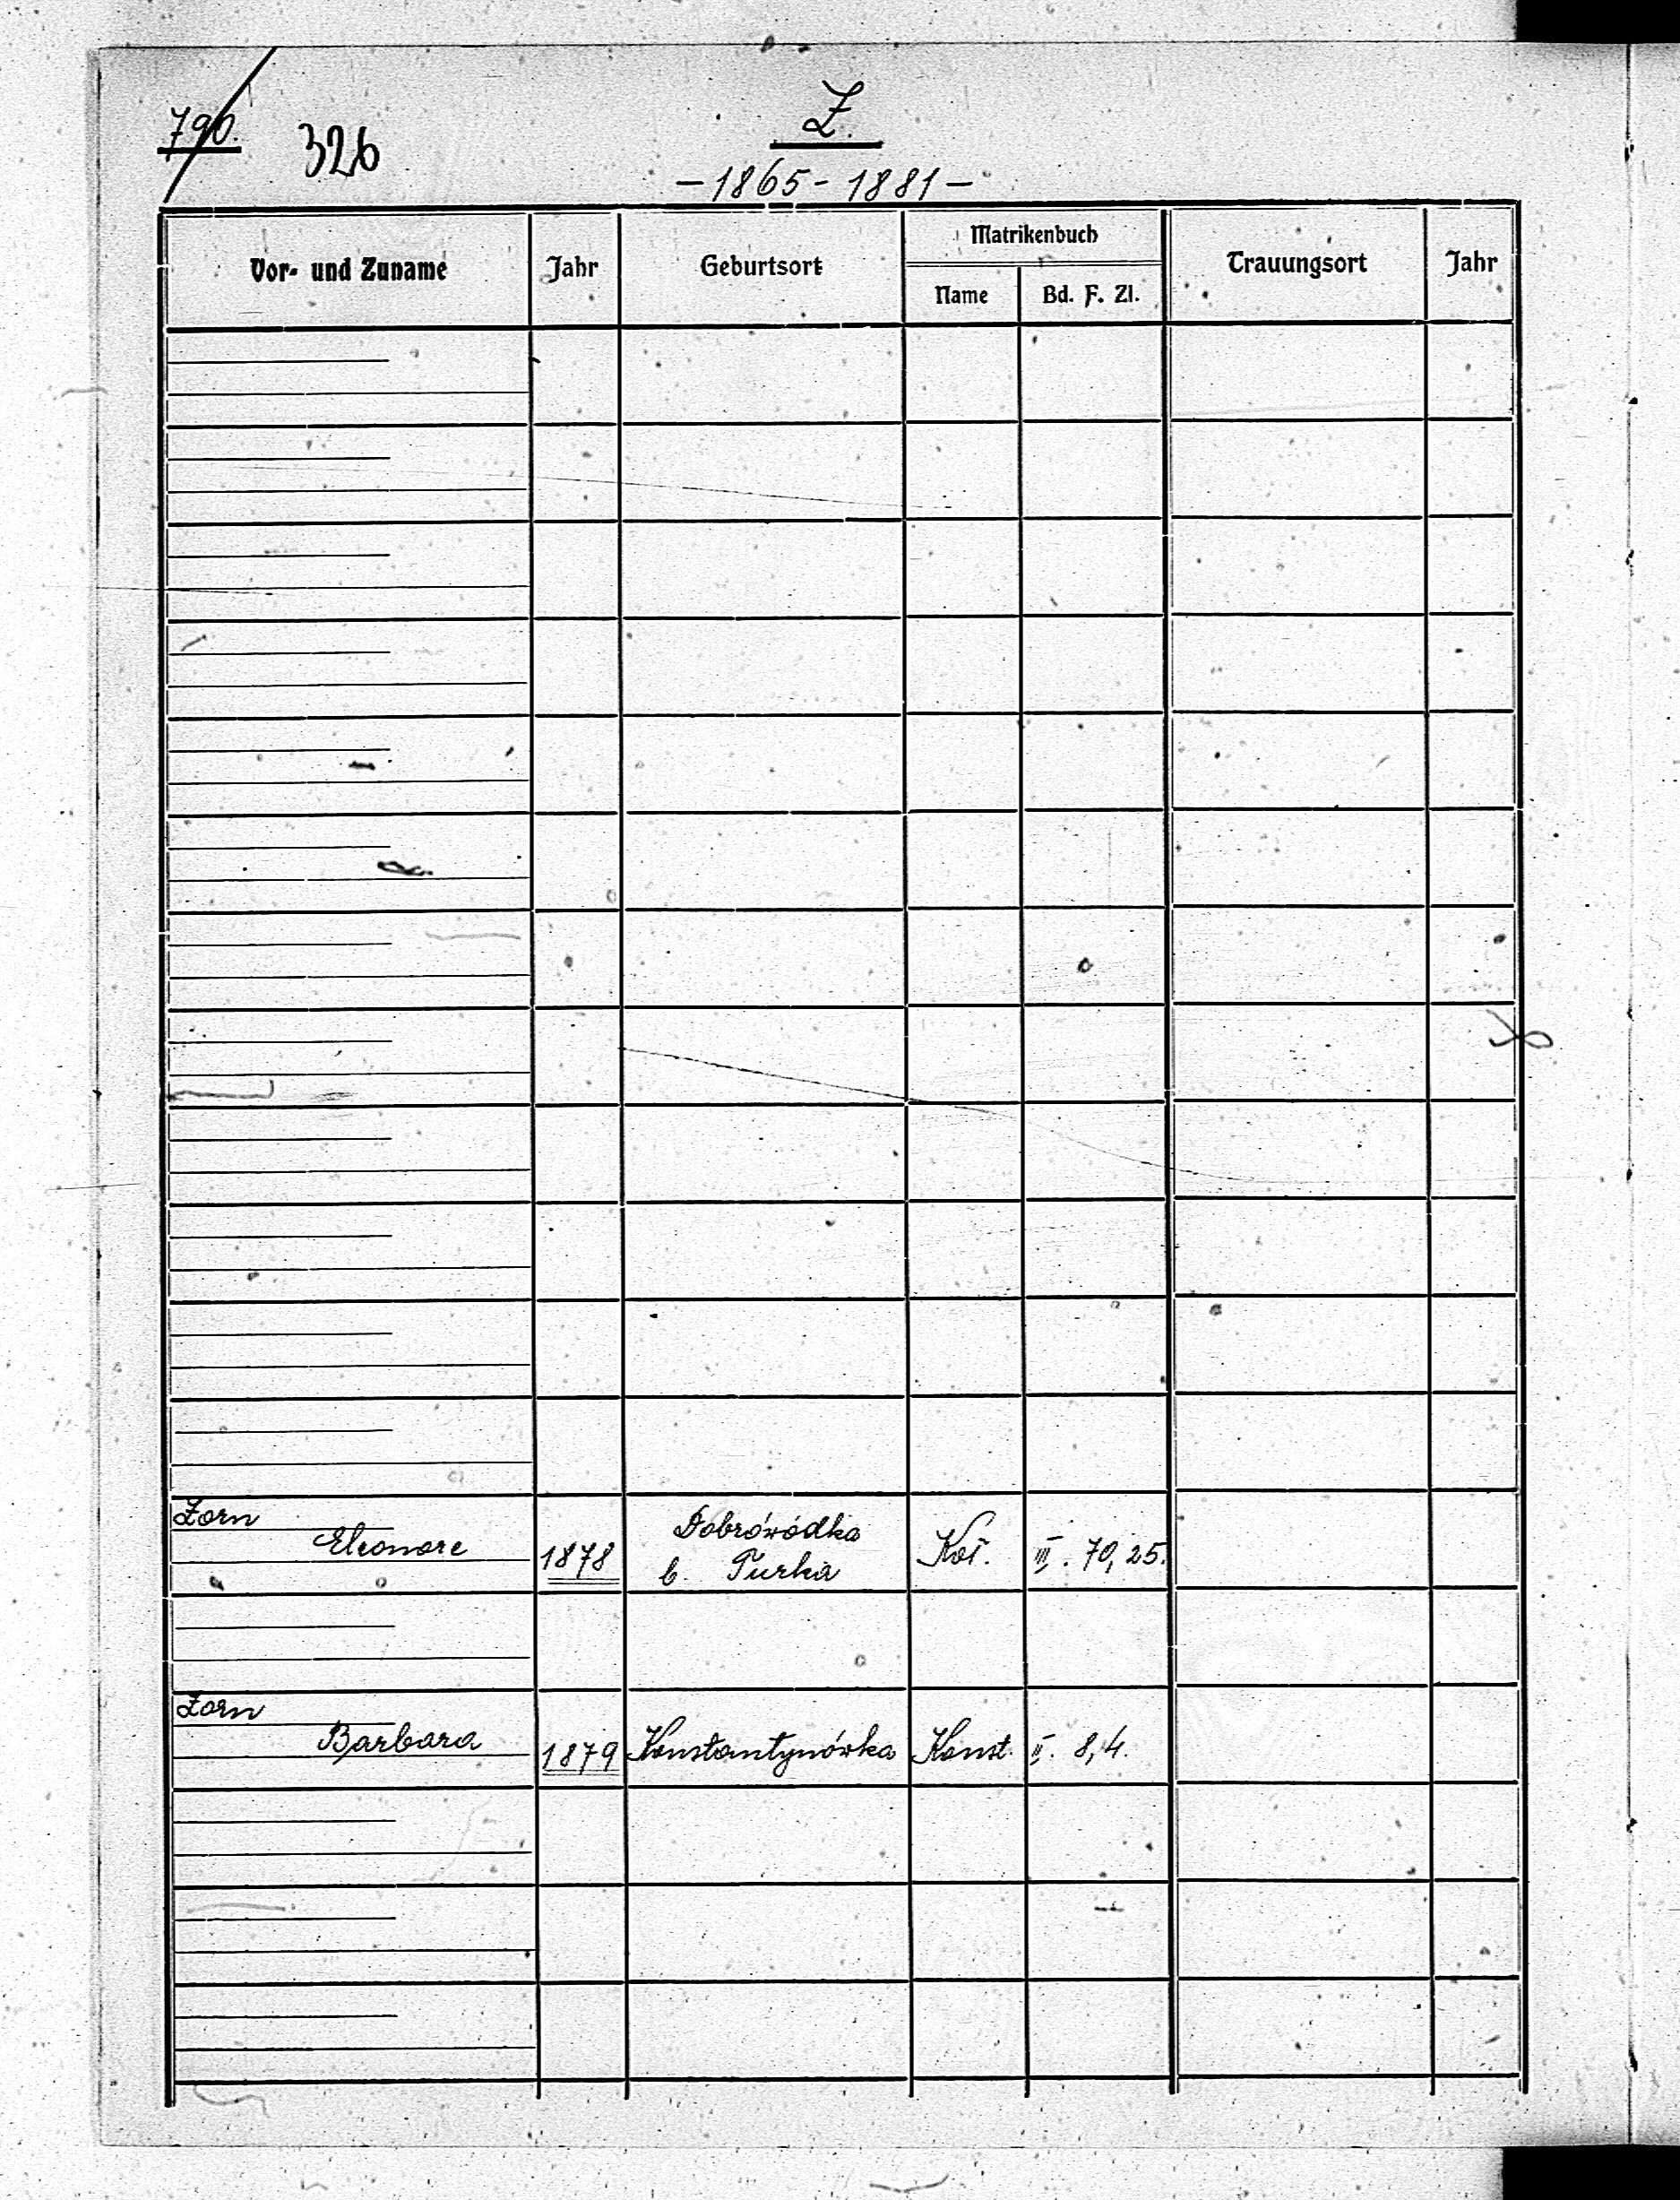 790.
326
Z.
- 1865 - 1881 -
Vor- und Zuname
Jahr
Geburtsort
Matrikenbuch
Name
Bd. F. Zl.
Trauungsort
Jahr
Zorn
Eleonore
1878
Dobrówódka
b. Turka
Koł.
III. 70, 25.
Zorn
Barbara
1879
Konstantynówka
Konst.
II. 8, 4.